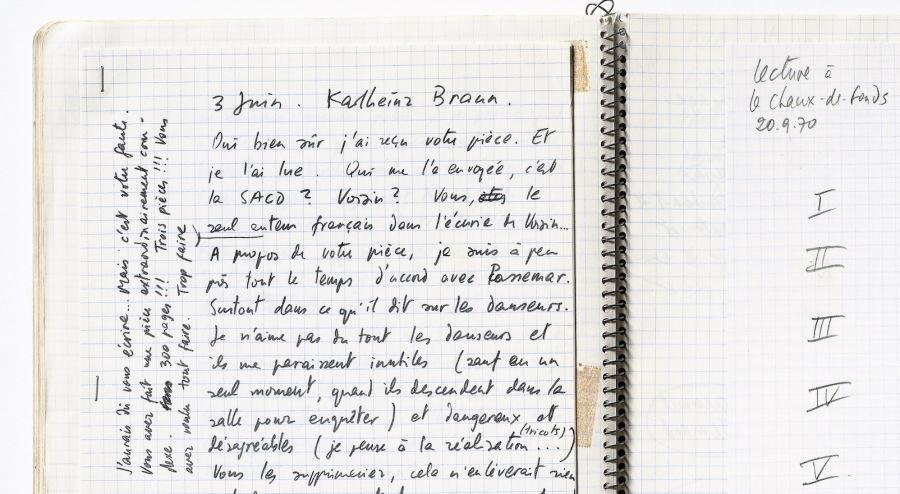 3 Juin. Karlheinz Braun.
Oui bien sûr j'ai reçu votre pièce. Et
je l'ai lue. Qui me l'a envoyée, c'est
la SACD ? Voisin ? Vous, êtes le
seul auteur français dans l'écurie de Voisin...
A propos de votre pièce, je suis à peu
près tout le temps d'accord avec Rossemar.
Surtout dans ce qu'il dit sur les danseurs.
Je n'aime pas du tout les danseurs et
ils me paraissent inutiles (sauf en un
seul moment, quand ils descendent dans la
salle pour enquêter) et dangereux et
(tricots)
désagréables (je pense à la réalisation ...)
Vous les supprimeriez, cela n'enlèverait rien
J'aurais dû vous écrire... Mais c'est votre faute.
Vous avez fait une pièce extraordinairement com-
plexe. 300 pages !!! Trois pièces !!! Vous
avez voulu tout faire. Trop faire
Lecture à
la Chaux-de-Fonds
20.9.70
I
II
III
IV
V.